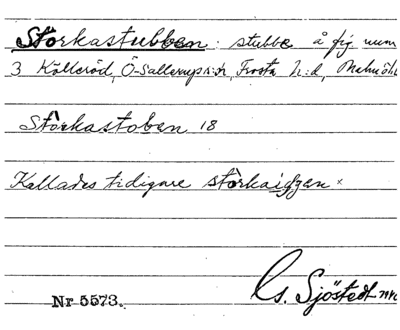 Storkastubben: stubbe å fig num
3 Källeröd, Ö-Sallerups s:n, Frosta h:d, Malmöh
Stôrkastoben 18
Kallades tidigare stôrkaiggen
Nr 5573.
Gs. Sjöstedt